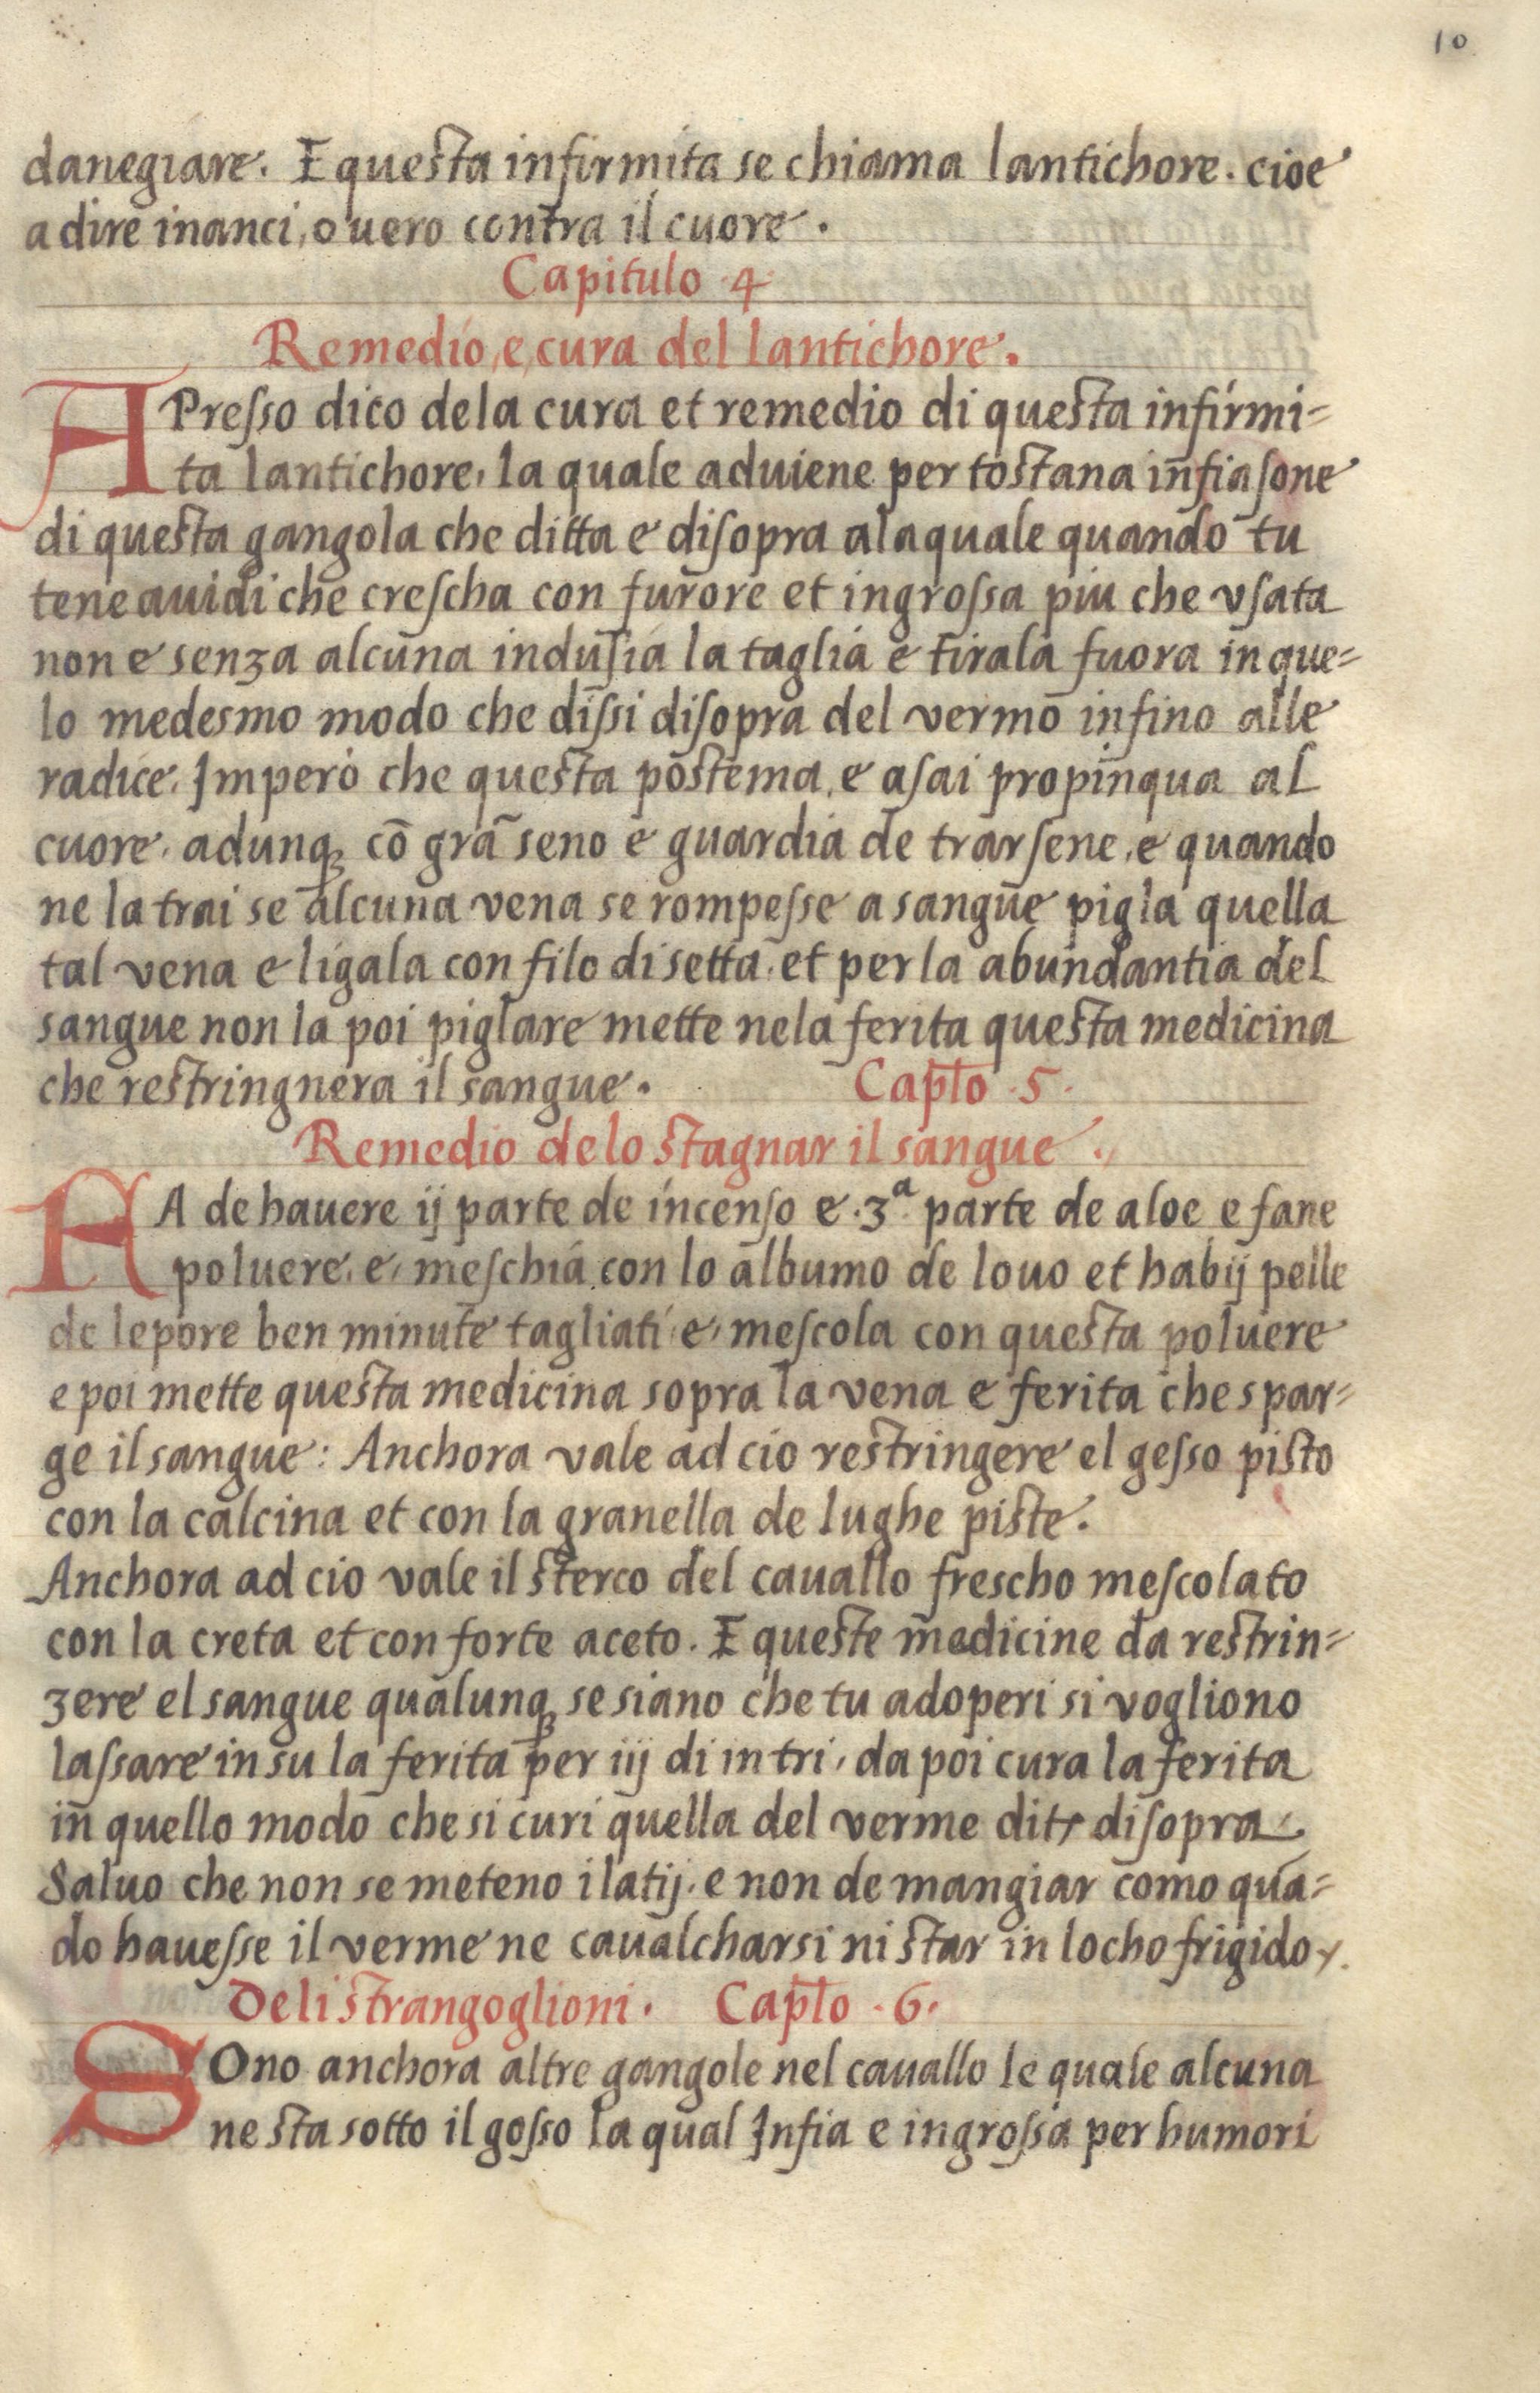 10
danegiare. E questa infirmita se chiama lantichore. cioe
a dire inanci, o uero contra il cuore.
Capitulo 4
Remedio, e, cura del lantichore.
APresso dico dela cura et remedio di questa infirmi=
ta lantichore, la quale aduiene per tostana infiasone
di questa gangola che ditta e disopra ala quale quando tu
tene auidi che crescha con furore et ingrossa piu che vsata
non e senza alcuna indusia la taglia e tirala fuora in que=
lo medesmo modo che dissi disopra del vermo infino alle
radice. Imperò che questa postema, e asai propinqua al
cuore, adunqꝫ cō grā seno e guardia de trarsene, e quando
ne la trai se alcuna vena se rompesse a sangue pigla quella
tal vena e ligala con filo di setta, et per la abundantia del
sangue non la poi piglare mette nela ferita questa medicina
che restringnera il sangue. Capto 5.
Remedio delo stagnar il sangue.
FA de hauere ij parte de incenso e .3ª. parte de aloe e fane
poluere, e, meschia con lo albumo de louo et habij pelle
de lepore ben minute tagliati e, mescola con questa poluere
e poi mette questa medicina sopra la vena e ferita che spar=
ge il sangue: Anchora vale ad cio restringere el gesso pisto
con la calcina et con la granella de lughe piste.
Anchora ad cio vale il sterco del cauallo frescho mescolato
con la creta et con forte aceto. E queste medicine da restrin=
zere el sangue qualunqꝫ se siano che tu adoperi si vogliono
lassare in su la ferita per iij di intri, da poi cura la ferita
in quello modo che si curi quella del verme disopra
Saluo che non se meteno i latij. e non de mangiar como quā=
do hauesse il verme ne caualcharsi ni star in locho frigido.
Deli strangoglioni. Capto .6.
SOno anchora altre gangole nel cauallo le quale alcuna
ne sta sotto il gosso la qual Infia e ingrossa per humori